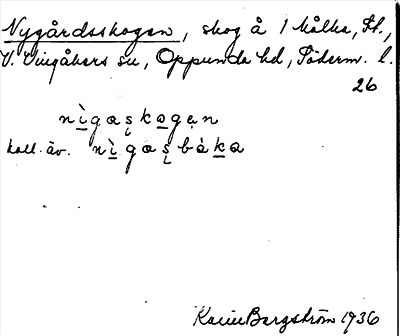 Nygårdsskogen, skog å 1 kålka, St.,
V. Vingåkers sn, Oppunda hd, Söderm. l.
26
nìgaşkogen
kall. äv. nìgaşbàka
Karin Bergström 1936